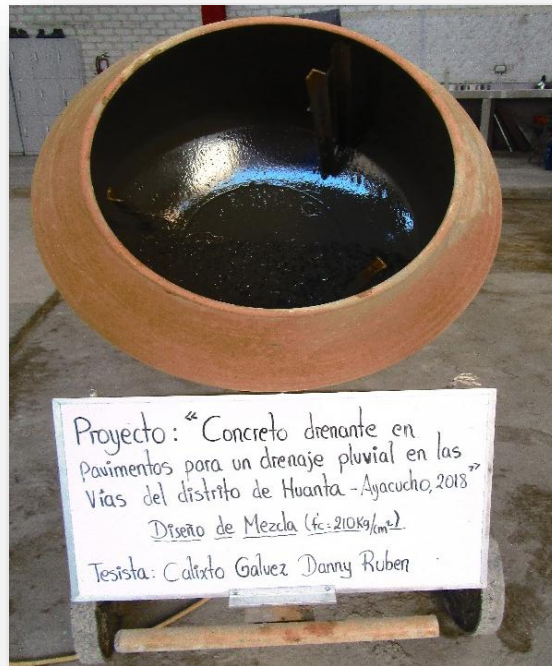 Proyecto: "Concreto drenante en
pavimentos para un drenaje pluvial en las
Vías del distrito de Huanta - Ayacucho, 2018"
Diseño de Mezcla (f'c=210Kg/cm²).
Tesista: Calixto Galvez Danny Ruben